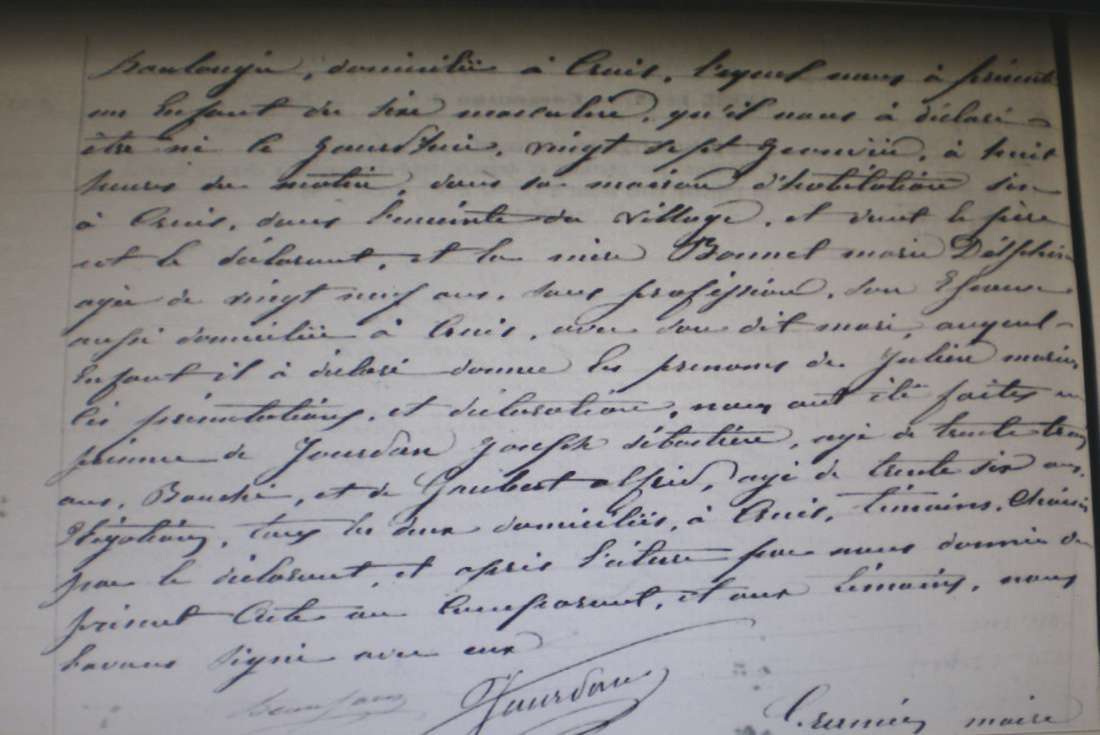 Boulanger, domicilié à Cruis, lequel nous à présenté
un Enfant du sexe masculin, qu'il nous à déclaré
être né le Jourd'hui, vingt sept Janvier, à huit
heures du matin, dans sa maison d'habitation sise
à Cruis, dans l'enceinte du village, et dont le père
est le déclarant, et la mère Bonnet marie Delphine
agée de vingt neuf ans, sans profession, son Epouse
aussi domiciliée à Cruis, avec son dit mari auquel
Enfant il à déclaré donner les prenoms de Julien marius
les présentations, et déclaration, nous ont été faites en
présence de Jourdan Joseph sébastien, agé de trente trois
ans, Boucher, et de Gaubert alfred, agé de trente six ans,
tous les deux domiciliés, à Cruis, témoins, choisis
par le déclarant, et après lecture par nous donnée du
présent Acte au Comparant, et aux témoins, nous
l'avons signé avec eux
Jourdan
maire